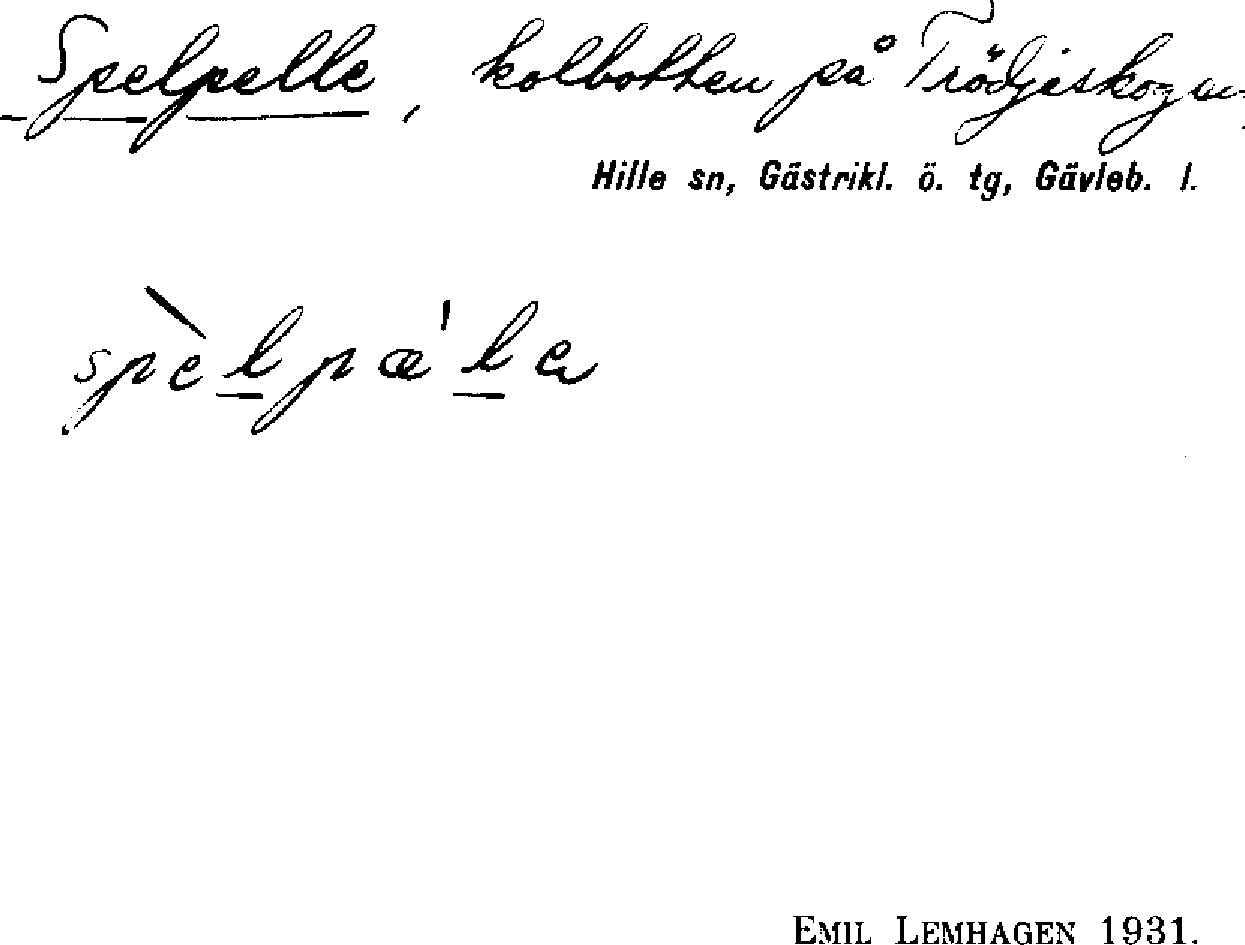 Spelpelle, kolbotten på Trödjeskogen.
Hille sn, Gästrikl. ö. tg, Gävleb. l.
spèlpæ'la
EMIL LEMHAGEN 1931.